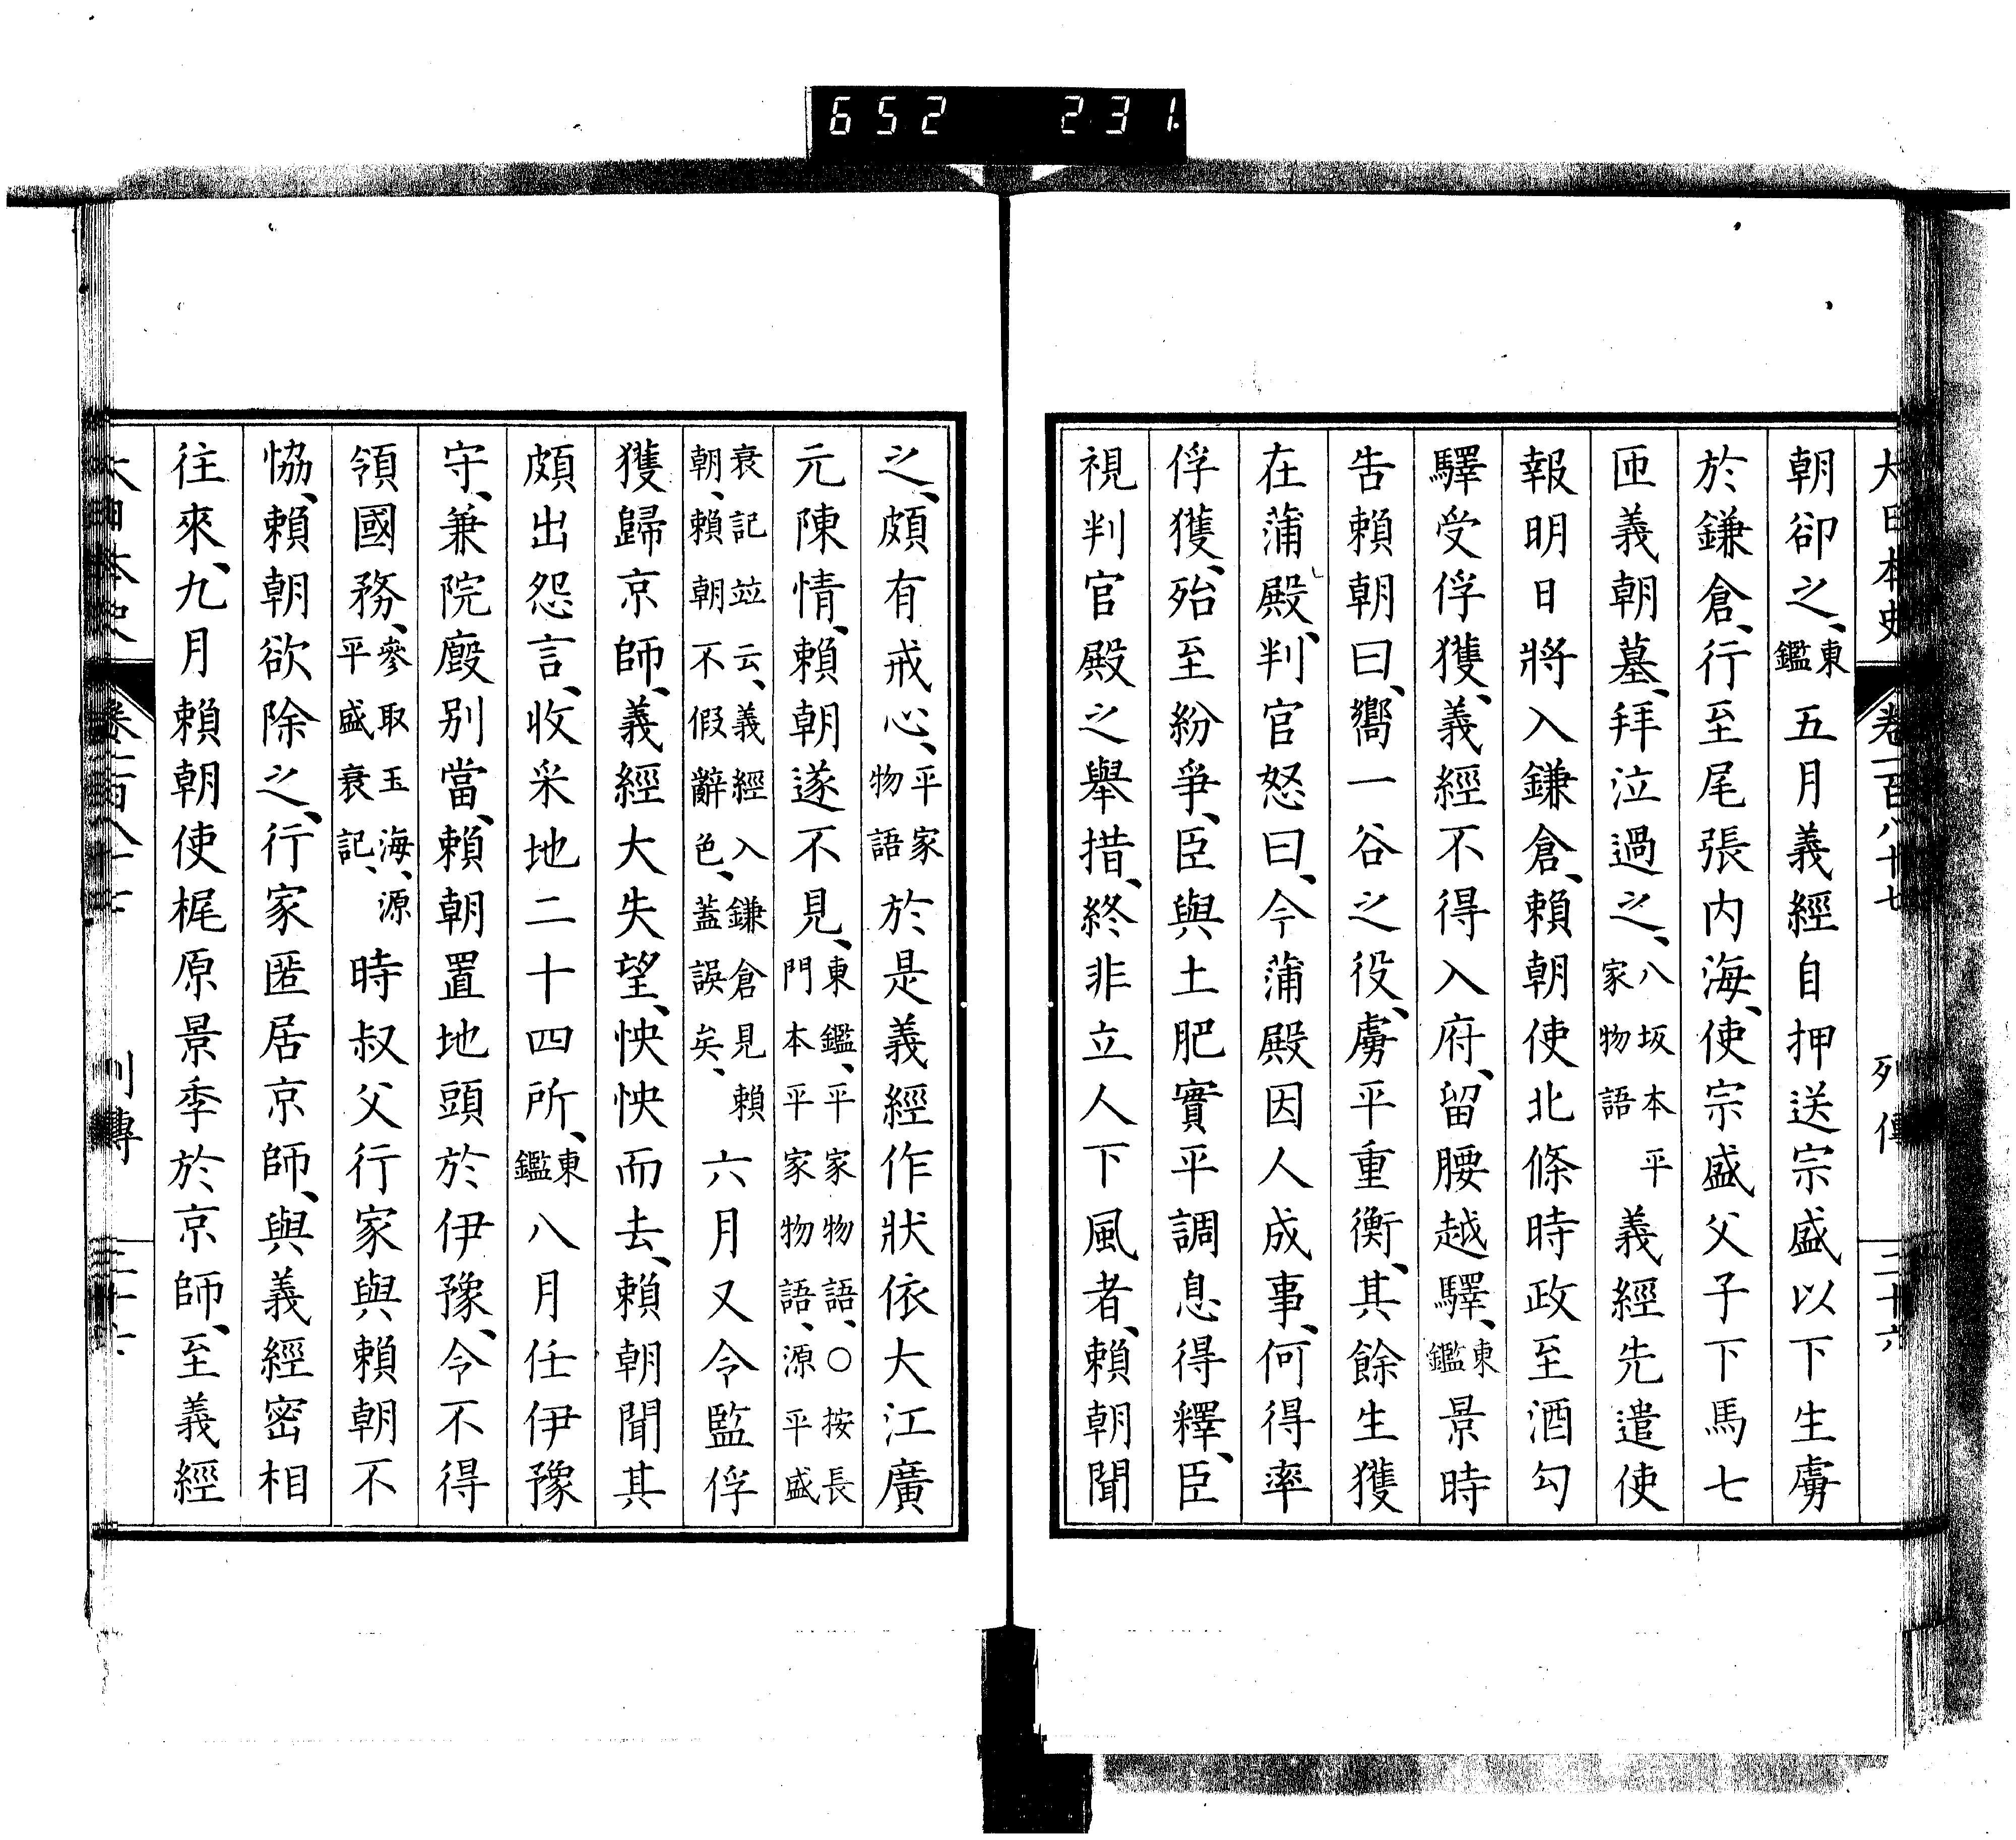 652 231.
大日本史 卷一百八十七 列傳 三十六
朝卻之、東鑑五月義經自押送宗盛以下生虜
於鎌倉、行至尾張內海、使宗盛父子下馬七
匝義朝墓、拜泣過之、八坂本平家物語義經先遣使
報明日將入鎌倉、賴朝使北條時政至酒勾
驛受俘獲、義經不得入府、留腰越驛、東鑑景時
告賴朝曰、嚮一谷之役、虜平重衡、其餘生獲
在蒲殿、判官怒曰、今蒲殿因人成事、何得率
俘獲、殆至紛爭、臣與土肥實平調息得釋、臣
視判官殿之舉措、終非立人下風者、賴朝聞
之、頗有戒心、平家物語於是義經作狀依大江廣
元陳情、賴朝遂不見、東鑑、平家物語、○按長門本平家物語、源平盛
衰記竝云、義經入鎌倉見賴朝、賴朝不假辭色、蓋誤矣、六月又令監俘
獲歸京師、義經大失望、怏怏而去、賴朝聞其
頗出怨言、收采地二十四所、東鑑八月任伊豫
守、兼院廄別當、賴朝置地頭於伊豫、令不得
領國務、參取玉海、源平盛衰記、時叔父行家與賴朝不
協、賴朝欲除之、行家匿居京師、與義經密相
往來、九月賴朝使梶原景季於京師、至義經
大日本史 列傳